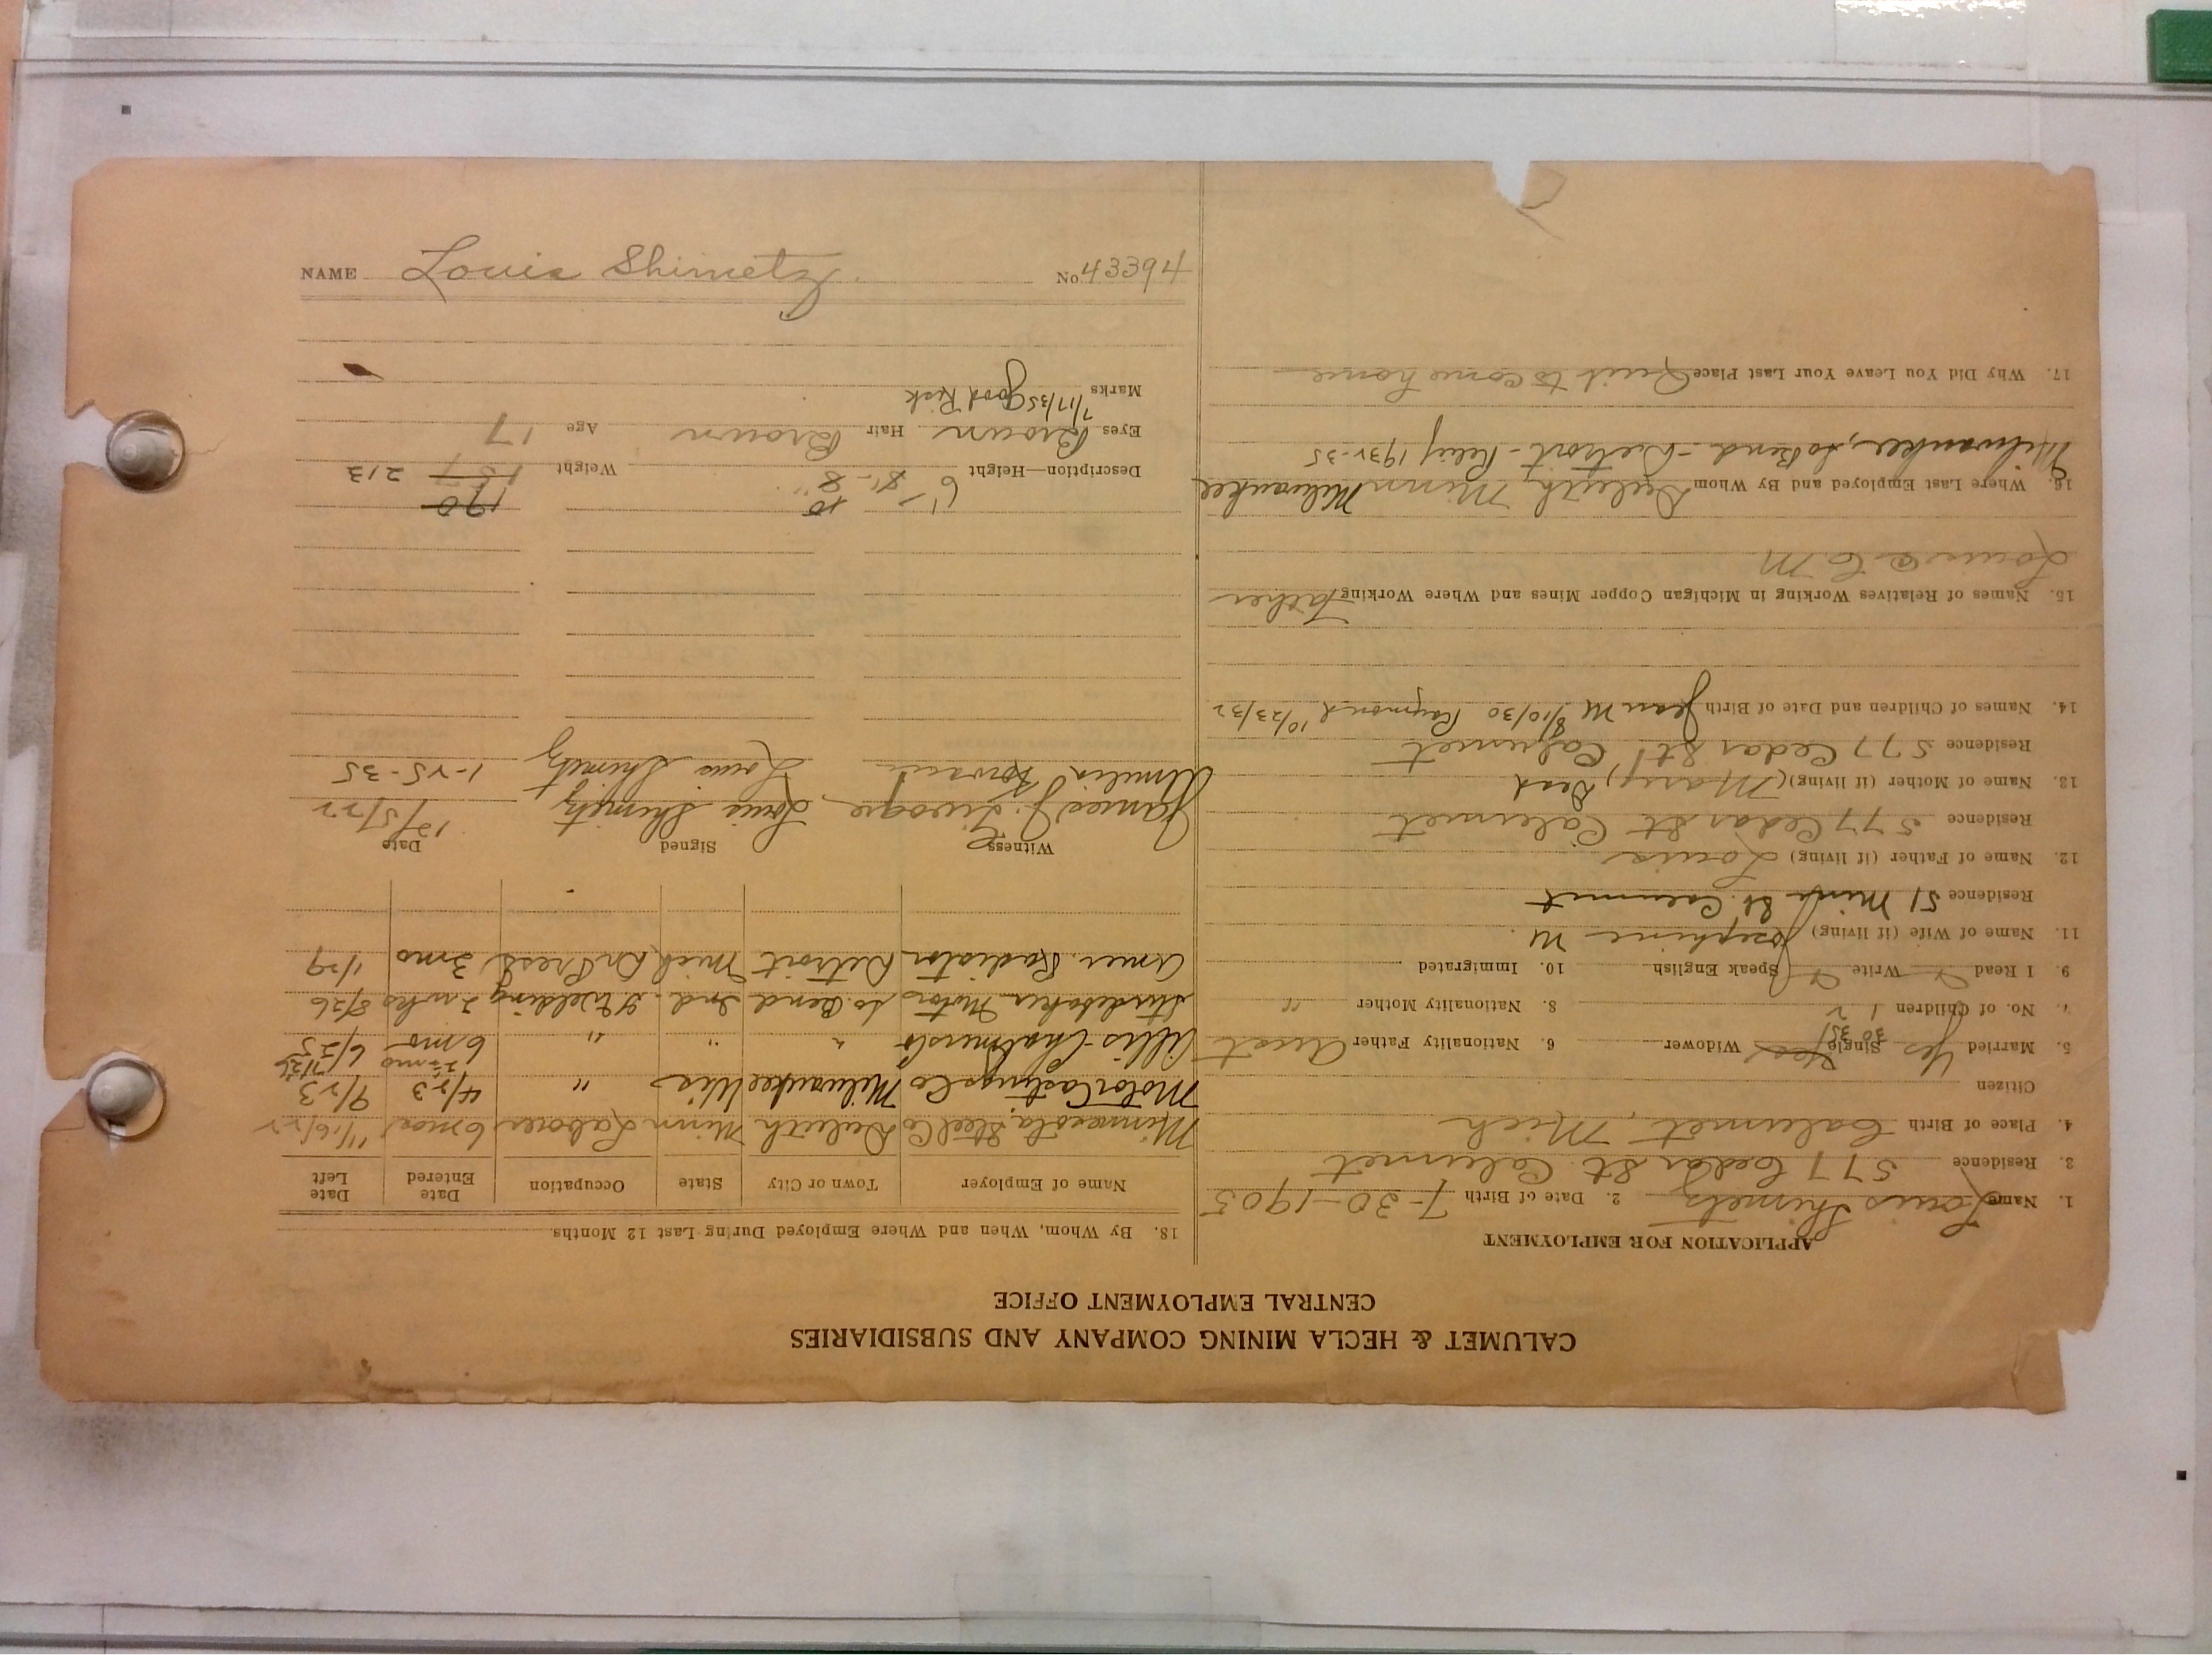 CALUMET & HECLA MINING COMPANY AND SUBSIDIARIES
CENTRAL EMPLOYMENT OFFICE
APPLICATION FOR EMPLOYMENT
1. Name Louis Shimetz 2. Date of Birth 7-30-1905
3. Residence 577 Cedar St. Calumet
4. Place of Birth Calumet, Mich
Citizen
5. Married Yes 30 Single 35 Widower 6. Nationality Father Aust
7. No. of Children 1 2 8. Nationality Mother "
9. I Read Write Speak English 10. Immigrated
11. Name of Wife (if living) Josephine M.
Residence 51 Mine St. Calumet
12. Name of Father (if living) Louis
Residence 577 Cedar St Calumet
13. Name of Mother (if living) (Mary) Dead
Residence 577 Cedar St. Calumet
14. Names of Children and Date of Birth Jean M 8/10/30 Raymond 10/23/32
15. Names of Relatives Working in Michigan Copper Mines and Where Working Father
Louis @ C M
16. Where Last Employed and By Whom Duluth Minn Milwaukee
Milwaukee, So Bend - Detroit - Relief 1932-35
17. Why Did You Leave Your Last Place Quit to come home
18. By Whom, When and Where Employed During Last 12 Months
Name of Employer Town or City State Occupation Date Entered Date Left
Minnesota Steel Co Duluth Minn Laborer 6 mos 11/16/22
Motor Castings Co Milwaukee Wis " 4/23 9/23
2 mo 7/26
Allis-Chalmers Co " " " 6 mo 6/25
Studebaker Motors So. Bend Ind. Welding 2 wks 8/26
Amer. Radiator Detroit Mich Dr Press 3 mo 1/29
Witness Signed Date
James J. Louis Shimetz 12/5/22
Amelia Louis Shimetz 1-25-35
10 190
Description—Height 6'- 8'-8" Weight 157 213
Eyes Brown Hair Brown Age 17
7/17/35 Good Risk
Marks
NAME Louis Shimetz No. 43394